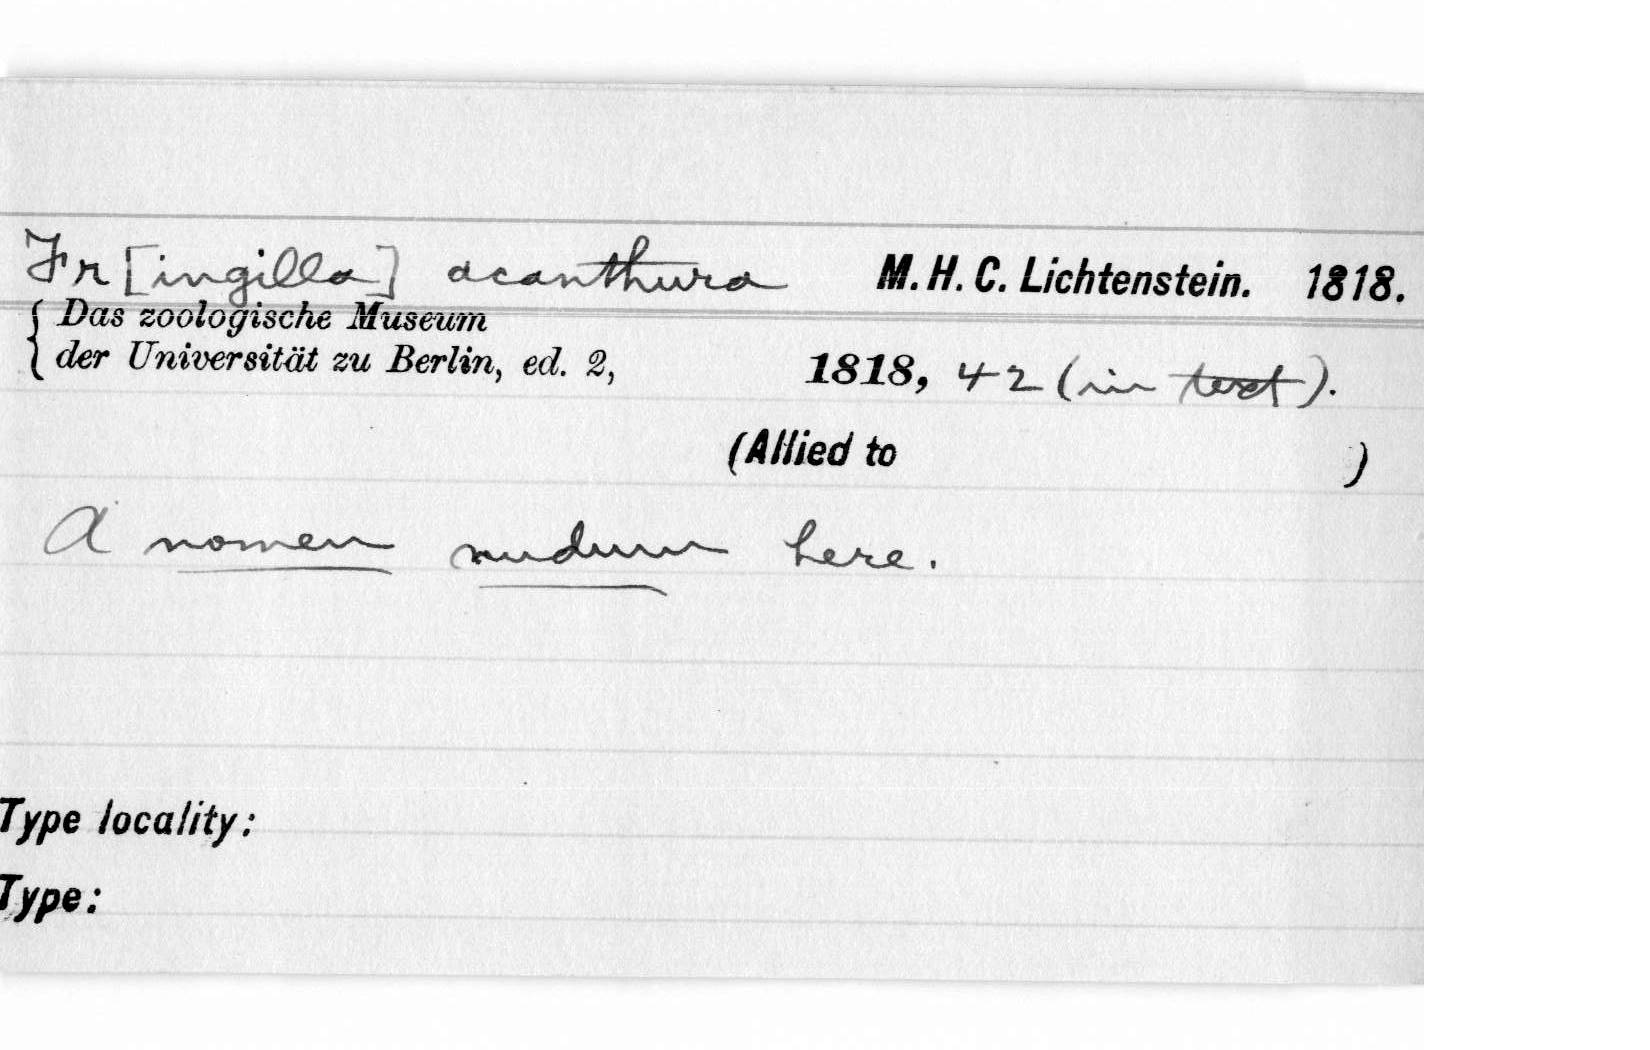 Fr[ingilla] acanthura M. H. C. Lichtenstein. 1818.
Das zoologische Museum
der Universität zu Berlin, ed. 2, 1818, 42 (in text).
(Allied to )
A nomen nudum here.
Type locality:
Type: